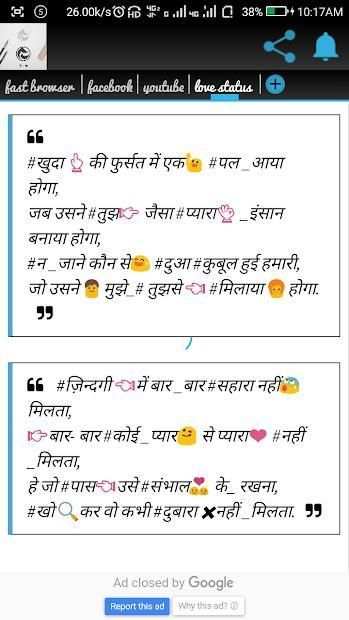 26.00k/s HD 4G 38% 10:17AM
fast browser | facebook | youtube | love status |
❝
#खुदा 👆 की फुर्सत में एक😗 #पल _आया
होगा,
जब उसने #तुझ👉 जैसा #प्यारा👌 _इंसान
बनाया होगा,
#न _जाने कौन से😄 #दुआ #कुबूल हुई हमारी,
जो उसने 👦 मुझे_# तुझसे 👈 #मिलाया 🙊 होगा.
❞
❝ #ज़िन्दगी 👈 में बार _बार #सहारा नहीं😰
मिलता,
👉 बार- बार #कोई _प्यार😊 से प्यारा❤ #नहीं
_मिलता,
हे जो #पास👈 उसे #संभाल💑 के_ रखना,
#खो🔍 कर वो कभी #दुबारा ✖नहीं _मिलता. ❞
Ad closed by Google
Report this ad Why this ad?